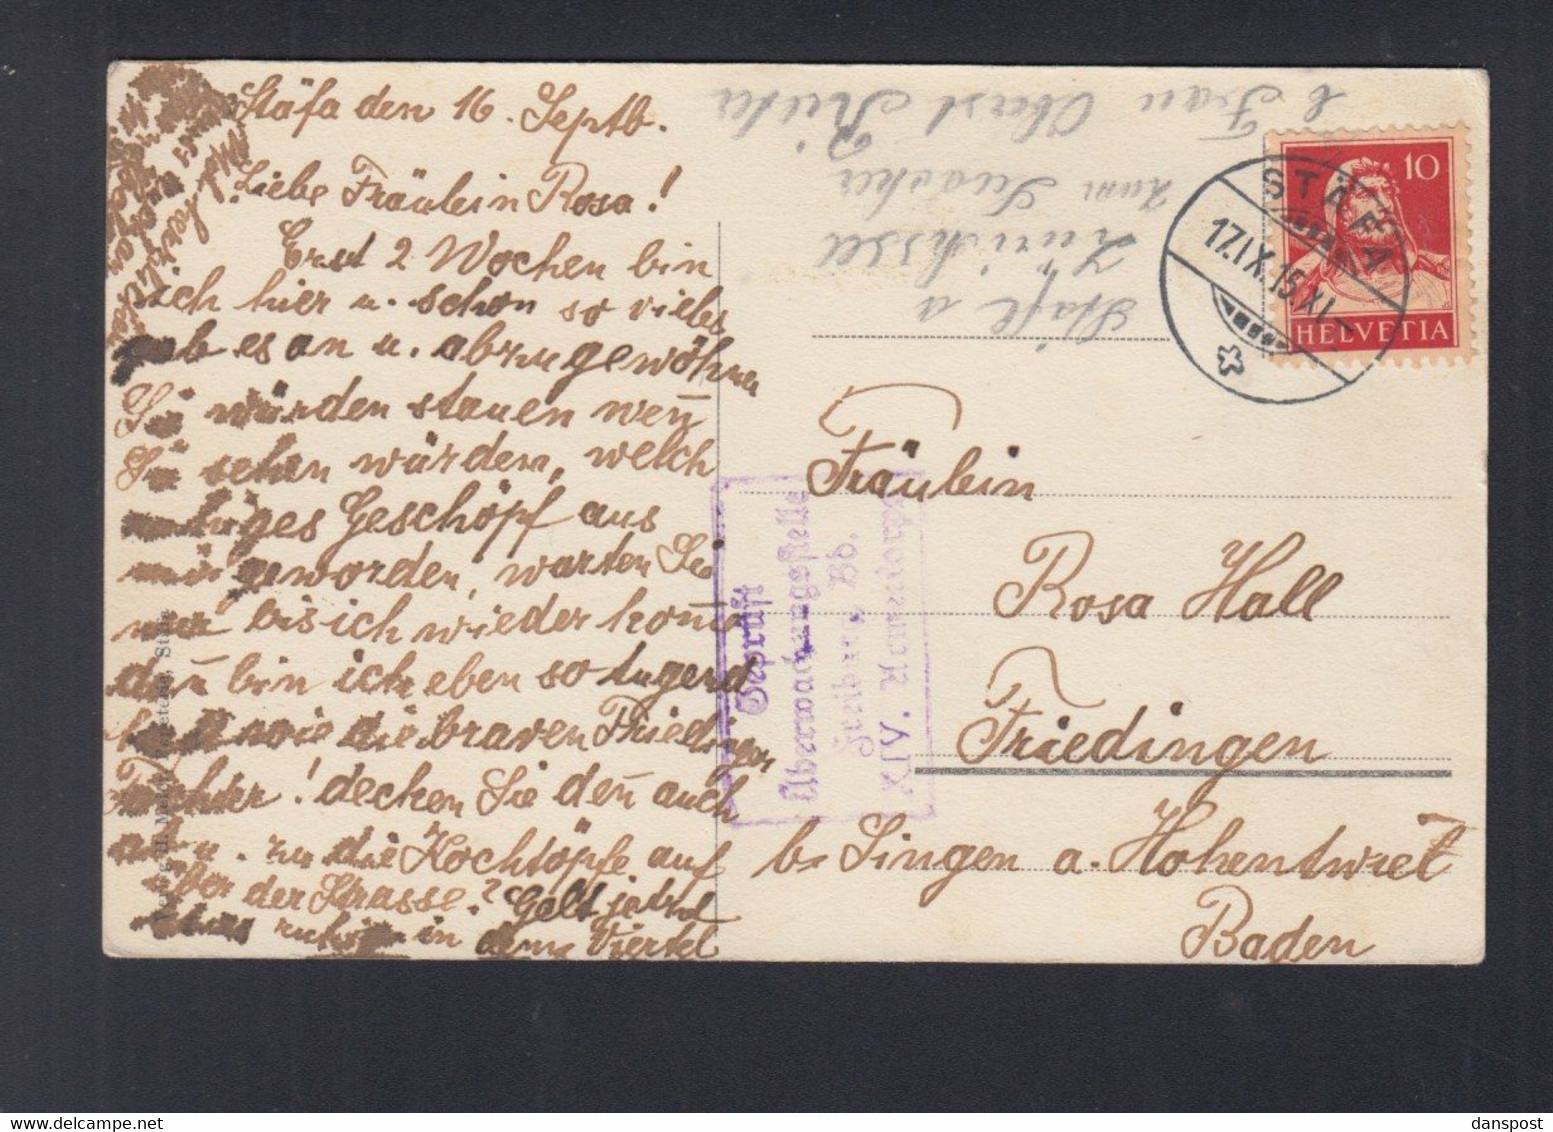 Stäfa den 16. Septb.
Liebe Fräulein Rosa!
Erst 2 Wochen bin
ich hier u. schon so vieles
gab es an u. abzugewöhnen
Sie würden stauen wen̄
Sie sehen würden, welch
ruhiges Geschöpf aus
mir geworden, warten Sie
nur bis ich wieder kom̄e
dan̄ bin ich eben so tugend
haft wie die braven Friedinger
Töchter! decken Sie den̄ auch
ab u. zu die Kochtöpfe auf
der Strasse? Gelt jetzt
in dem Viertel
Mit herzlichen
Frau Oberst
zum
Zürichsee
Stäfa a
STÄFA
17.IX.15.XI
10
HELVETIA
Geprüft
Überwachungsstelle
Freiburg, Bb.
XIV. Armeekorps
Fräulein
Rosa Hall
Friedingen
b. Singen a. Hohentwiel
Baden
danspost